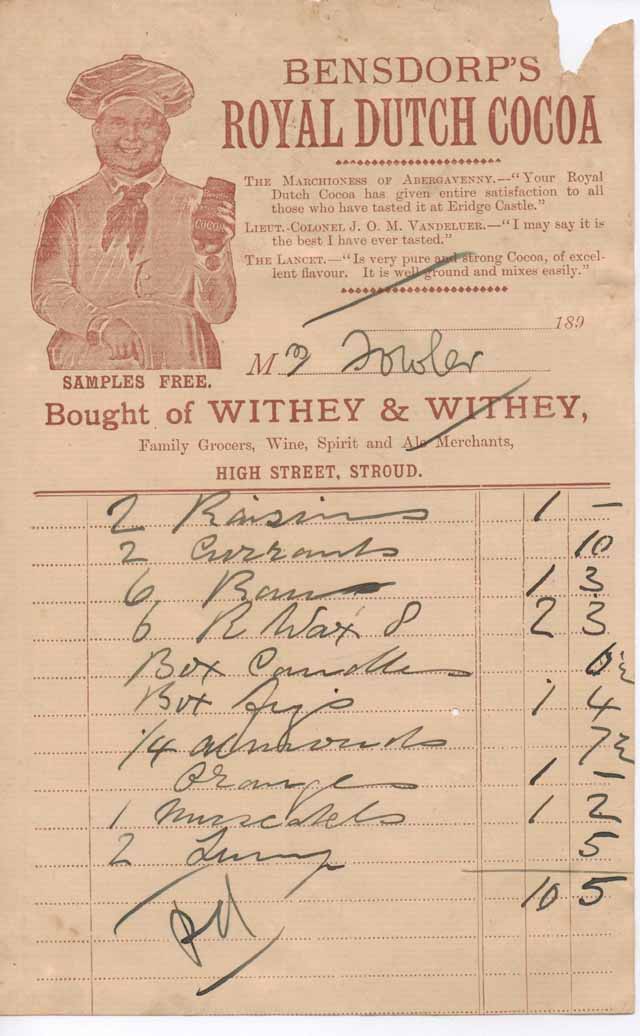 BENSDORP'S
ROYAL DUTCH COCOA
THE MARCHIONESS OF ABERGAVENNY.—"Your Royal
Dutch Cocoa has given entire satisfaction to all
those who have tasted it at Eridge Castle."
LIEUT.-COLONEL J. O. M. VANDELUER.—"I may say it is
the best I have ever tasted."
THE LANCET.—"Is very pure and strong Cocoa, of excel-
lent flavour. It is well ground and mixes easily."
COCOA
189
M Fowler
SAMPLES FREE.
Bought of WITHEY & WITHEY,
Family Grocers, Wine, Spirit and Ale Merchants,
HIGH STREET, STROUD.
2 Raisins 1 –
2 Currants 10
6 1 3
6 R Wax 8 2 3
Box Candles 6½
Box figs 1 4
1/4 almonds 7½
Oranges 1 –
1 Muscatels 1 2
2 5
10 5